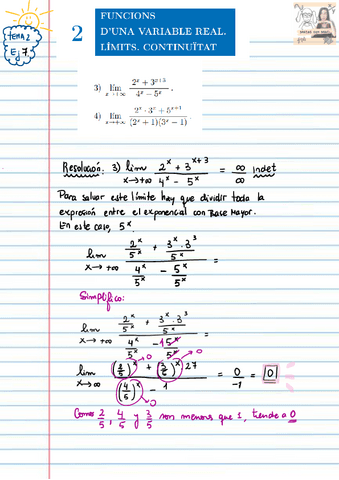 TEMA 2
Ej 7
2
FUNCIONS
D'UNA VARIABLE REAL.
LÍMITS. CONTINUÏTAT
3) lim x→+∞ (2^x + 3^(x+3)) / (4^x − 5^x) .
4) lim x→+∞ (2^x · 3^x + 5^(x+1)) / ((2^x + 1)(3^x − 1)) .
Resolución: 3) lim x→+∞ (2^x + 3^(x+3)) / (4^x − 5^x) = ∞/∞ indet
Para salvar este límite hay que dividir toda la
expresión entre el exponencial con Base Mayor.
En este caso, 5^x.
lim x→+∞ (2^x/5^x + 3^x·3^3/5^x) / (4^x/5^x − 5^x/5^x) =
Simplifico:
lim x→+∞ (2^x/5^x + 3^x·3^3/5^x) / (4^x/5^x − 1 5^x/5^x) =
lim x→∞ ((2/5)^x →0 + (3/5)^x →0 27) / ((4/5)^x →0 − 1) = 0/−1 = 0
Como 2/5, 4/5 y 3/5 son menores que 1, tiende a 0